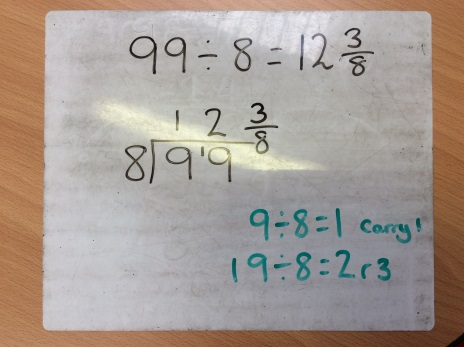 99÷8=12 3/8
1 2 3/8
8)9¹9
9÷8=1 carry!
19÷8=2r3